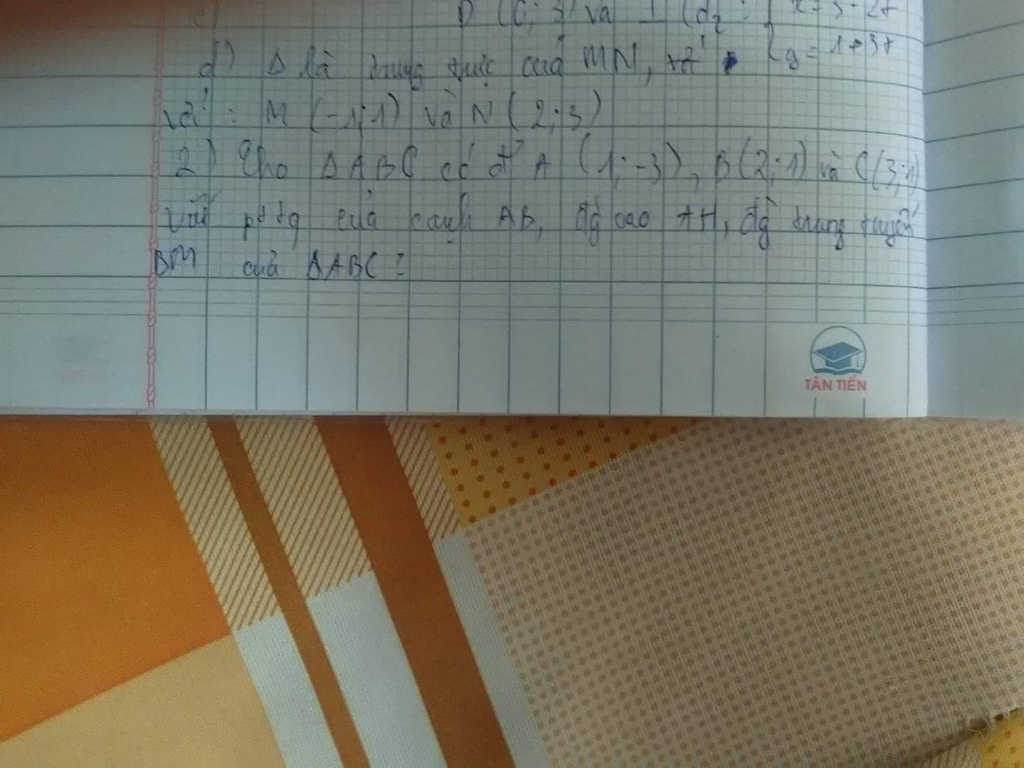 d) Δ là trung trực của MN, { y = 1+3t
với: M (-1;1) và N (2;3)
2) Cho ΔABC có đ² A (1;-3), B(2;1) và C(3;1)
Viết pttq của cạnh AB, đg cao AH, đg trung tuyến
BM của ΔABC?
TÂN TIẾN